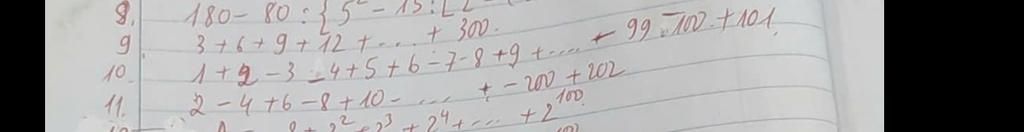 8. 180 - 80 : { 5² - 15 : [
9 3 + 6 + 9 + 12 + .... + 300.
10. 1 + 2 - 3 - 4 + 5 + 6 - 7 - 8 + 9 + .... + 99 - 100 + 101.
11. 2 - 4 + 6 - 8 + 10 - .... + - 200 + 202
+ 2² + 2³ + 2⁴ + .... + 2¹⁰⁰.